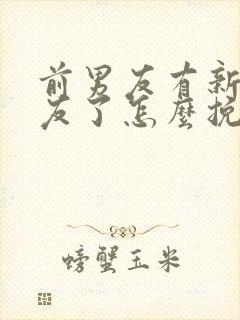 前男友有新
友了怎麼挽
螃蟹玉米